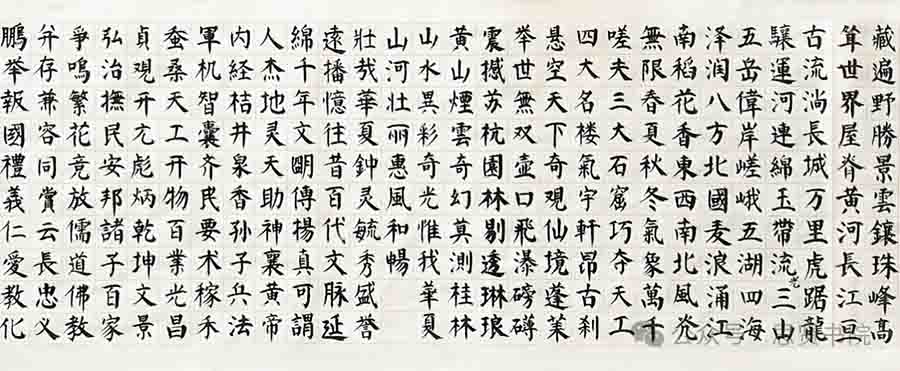 藏遍野勝景雲鑲珠峰高
耸世界屋脊黄河長江亘
古流淌長城万里虎踞龍
驤運河連綿玉帶流光三山
五岳偉岸嵯峨五湖四海
泽润八方北國麦浪涌江
南稻花香東西南北風光
無限春夏秋冬氣象萬千
嗟夫三大石窟巧夺天工
四大名楼氣宇軒昂古刹
悬空天下奇觀仙境蓬莱
举世無双壶口飛瀑磅礴
震撼苏杭園林剔透琳琅
黄山煙雲奇幻莫测桂林
山水異彩奇光惟我華夏
山河壮丽惠風和暢
壯哉華夏鈡灵毓秀盛誉
遠播憶往昔百代文脉延
綿千年文明傳揚真可謂
人杰地灵天助神襄黄帝
内経桔井泉香孙子兵法
軍机智囊齐民要术稼禾
蚕桑天工开物百業光昌
貞觀开元彪炳乾坤文景
弘治撫民安邦諸子百家
爭鳴繁花竞放儒道佛教
并存兼容同赏云長忠义
鵬举報國禮義仁愛教化
公众号 · 书院